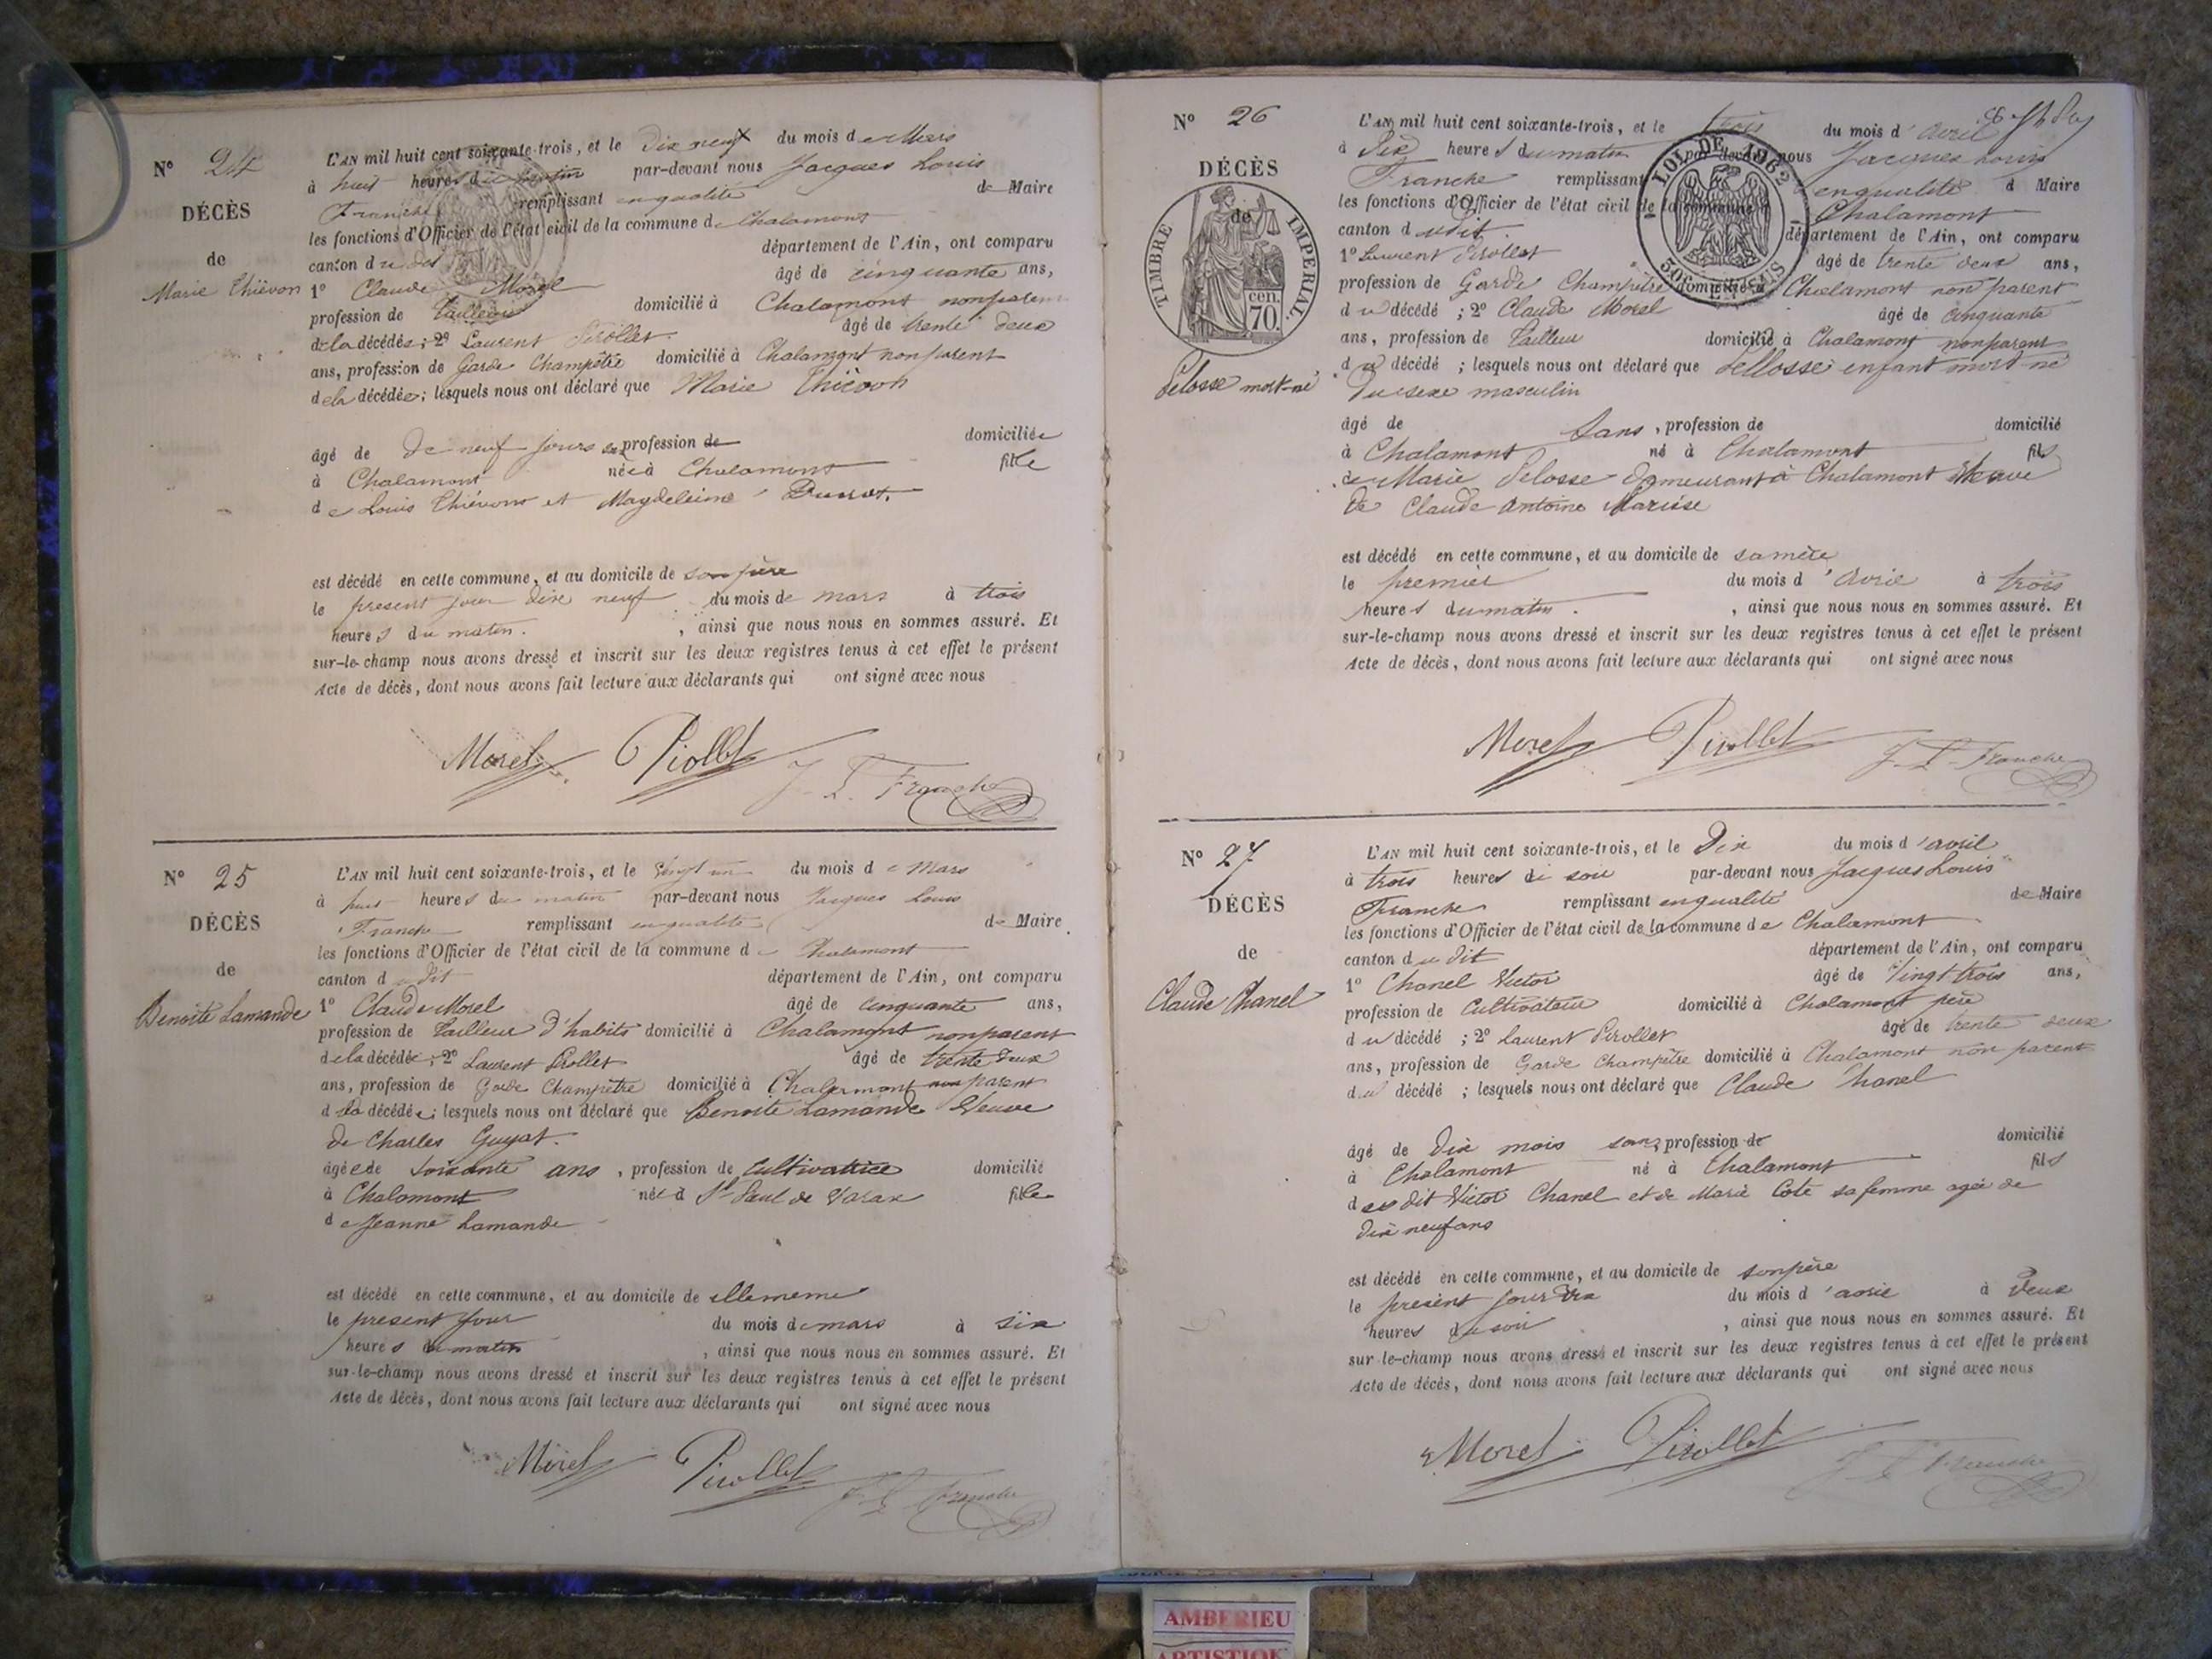 N° 24
DÉCÈS
de
Marie Thiévon
L'AN mil huit cent soixante-trois, et le Dix neuf du mois de Mars
à huit heures du matin par-devant nous Jacques Louis
Franche remplissant en qualité de Maire
les fonctions d'Officier de l'état civil de la commune de Chalamont
canton du dit département de l'Ain, ont comparu
1° Claude Morel âgé de cinquante ans,
profession de Tailleur domicilié à Chalamont non parent
de la décédée; 2° Laurent Pirollet âgé de trente deux
ans, profession de Garde Champêtre domicilié à Chalamont non parent
de la décédée; lesquels nous ont déclaré que Marie Thiévon
âgé de de neuf jours profession de domiciliée
à Chalamont née à Chalamont fille
de Louis Thiévon et Magdeleine
est décédé en cette commune, et au domicile de son père
le present jour dixe neuf du mois de mars à trois
heures du matin. , ainsi que nous nous en sommes assuré. Et
sur-le-champ nous avons dressé et inscrit sur les deux registres tenus à cet effet le présent
Acte de décès, dont nous avons fait lecture aux déclarants qui ont signé avec nous
Morel Piollet J. L. Franche
N° 25
DÉCÈS
de
Benoite Lamande
L'AN mil huit cent soixante-trois, et le vingt un du mois de Mars
à huit heures du matin par-devant nous Jacques Louis
Franche remplissant en qualité de Maire
les fonctions d'Officier de l'état civil de la commune de Chalamont
canton du dit département de l'Ain, ont comparu
1° Claude Morel âgé de cinquante ans,
profession de Tailleur d'habits domicilié à Chalamont non parent
de la décédée; 2° Laurent Pirollet âgé de trente deux
ans, profession de Garde Champêtre domicilié à Chalamont non parent
de la décédée; lesquels nous ont déclaré que Benoite Lamande Veuve
de Charles Guyat.
âgée de soixante ans, profession de cultivatrice domicilié
à Chalamont née à St Paul de Varax fille
de Jeanne Lamande
est décédé en cette commune, et au domicile de elle meme
le present jour du mois de mars à six
heures du matin , ainsi que nous nous en sommes assuré. Et
sur-le-champ nous avons dressé et inscrit sur les deux registres tenus à cet effet le présent
Acte de décès, dont nous avons fait lecture aux déclarants qui ont signé avec nous
Morel Pirollet J. L. Franche
N° 26
DÉCÈS
de
TIMBRE IMPERIAL
70 cen.
Pelosse mort-né
L'AN mil huit cent soixante-trois, et le trois du mois d'avril
à Six heures du matin par-devant nous Jacques Louis
Franche remplissant en qualité d Maire
les fonctions d'Officier de l'état civil de la commune Chalamont
canton dudit. département de l'Ain, ont comparu
1° Laurent Pirollet âgé de trente deux ans,
profession de Garde Champêtre domicilié à Chalamont non parent
LOI DE 1862
du décédé ; 2° Claude Morel âgé de cinquante
ans, profession de Tailleur domicilié à Chalamont non parent
du décédé ; lesquels nous ont déclaré que Pellosse enfant mort-né
du sexe masculin
âgé de Sans, profession de domicilié
à Chalamont né à Chalamont fils
de Marie Pelosse demeurant à Chalamont Veuve
de Claude Antoine
est décédé en cette commune, et au domicile de sa mère
le premier du mois d'avril à trois
heures du matin. , ainsi que nous nous en sommes assuré. Et
sur-le-champ nous avons dressé et inscrit sur les deux registres tenus à cet effet le présent
Acte de décès, dont nous avons fait lecture aux déclarants qui ont signé avec nous
Morel Pirollet J. L. Franche
N° 27
DÉCÈS
de
Claude Chanel
L'AN mil huit cent soixante-trois, et le Dix du mois d'avril
à trois heures du soir par-devant nous Jacques Louis
Franche remplissant en qualité de Maire
les fonctions d'Officier de l'état civil de la commune de Chalamont
canton du dit département de l'Ain, ont comparu
1° Chanel Victor âgé de Vingt trois ans,
profession de Cultivateur domicilié à Chalamont père
du décédé ; 2° Laurent Pirollet âgé de trente deux
ans, profession de Garde Champêtre domicilié à Chalamont non parent
du décédé ; lesquels nous ont déclaré que Claude Chanel
âgé de Dix mois sans profession de domicilié
à Chalamont né à Chalamont fils
du dit Victor Chanel et de Marie Cote sa femme agée de
Dix neuf ans
est décédé en cette commune, et au domicile de son père
le present jour dix du mois d'avril à Deux
heures du soir , ainsi que nous nous en sommes assuré. Et
sur-le-champ nous avons dressé et inscrit sur les deux registres tenus à cet effet le présent
Acte de décès, dont nous avons fait lecture aux déclarants qui ont signé avec nous
Morel Pirollet J. L. Franche
AMBERIEU